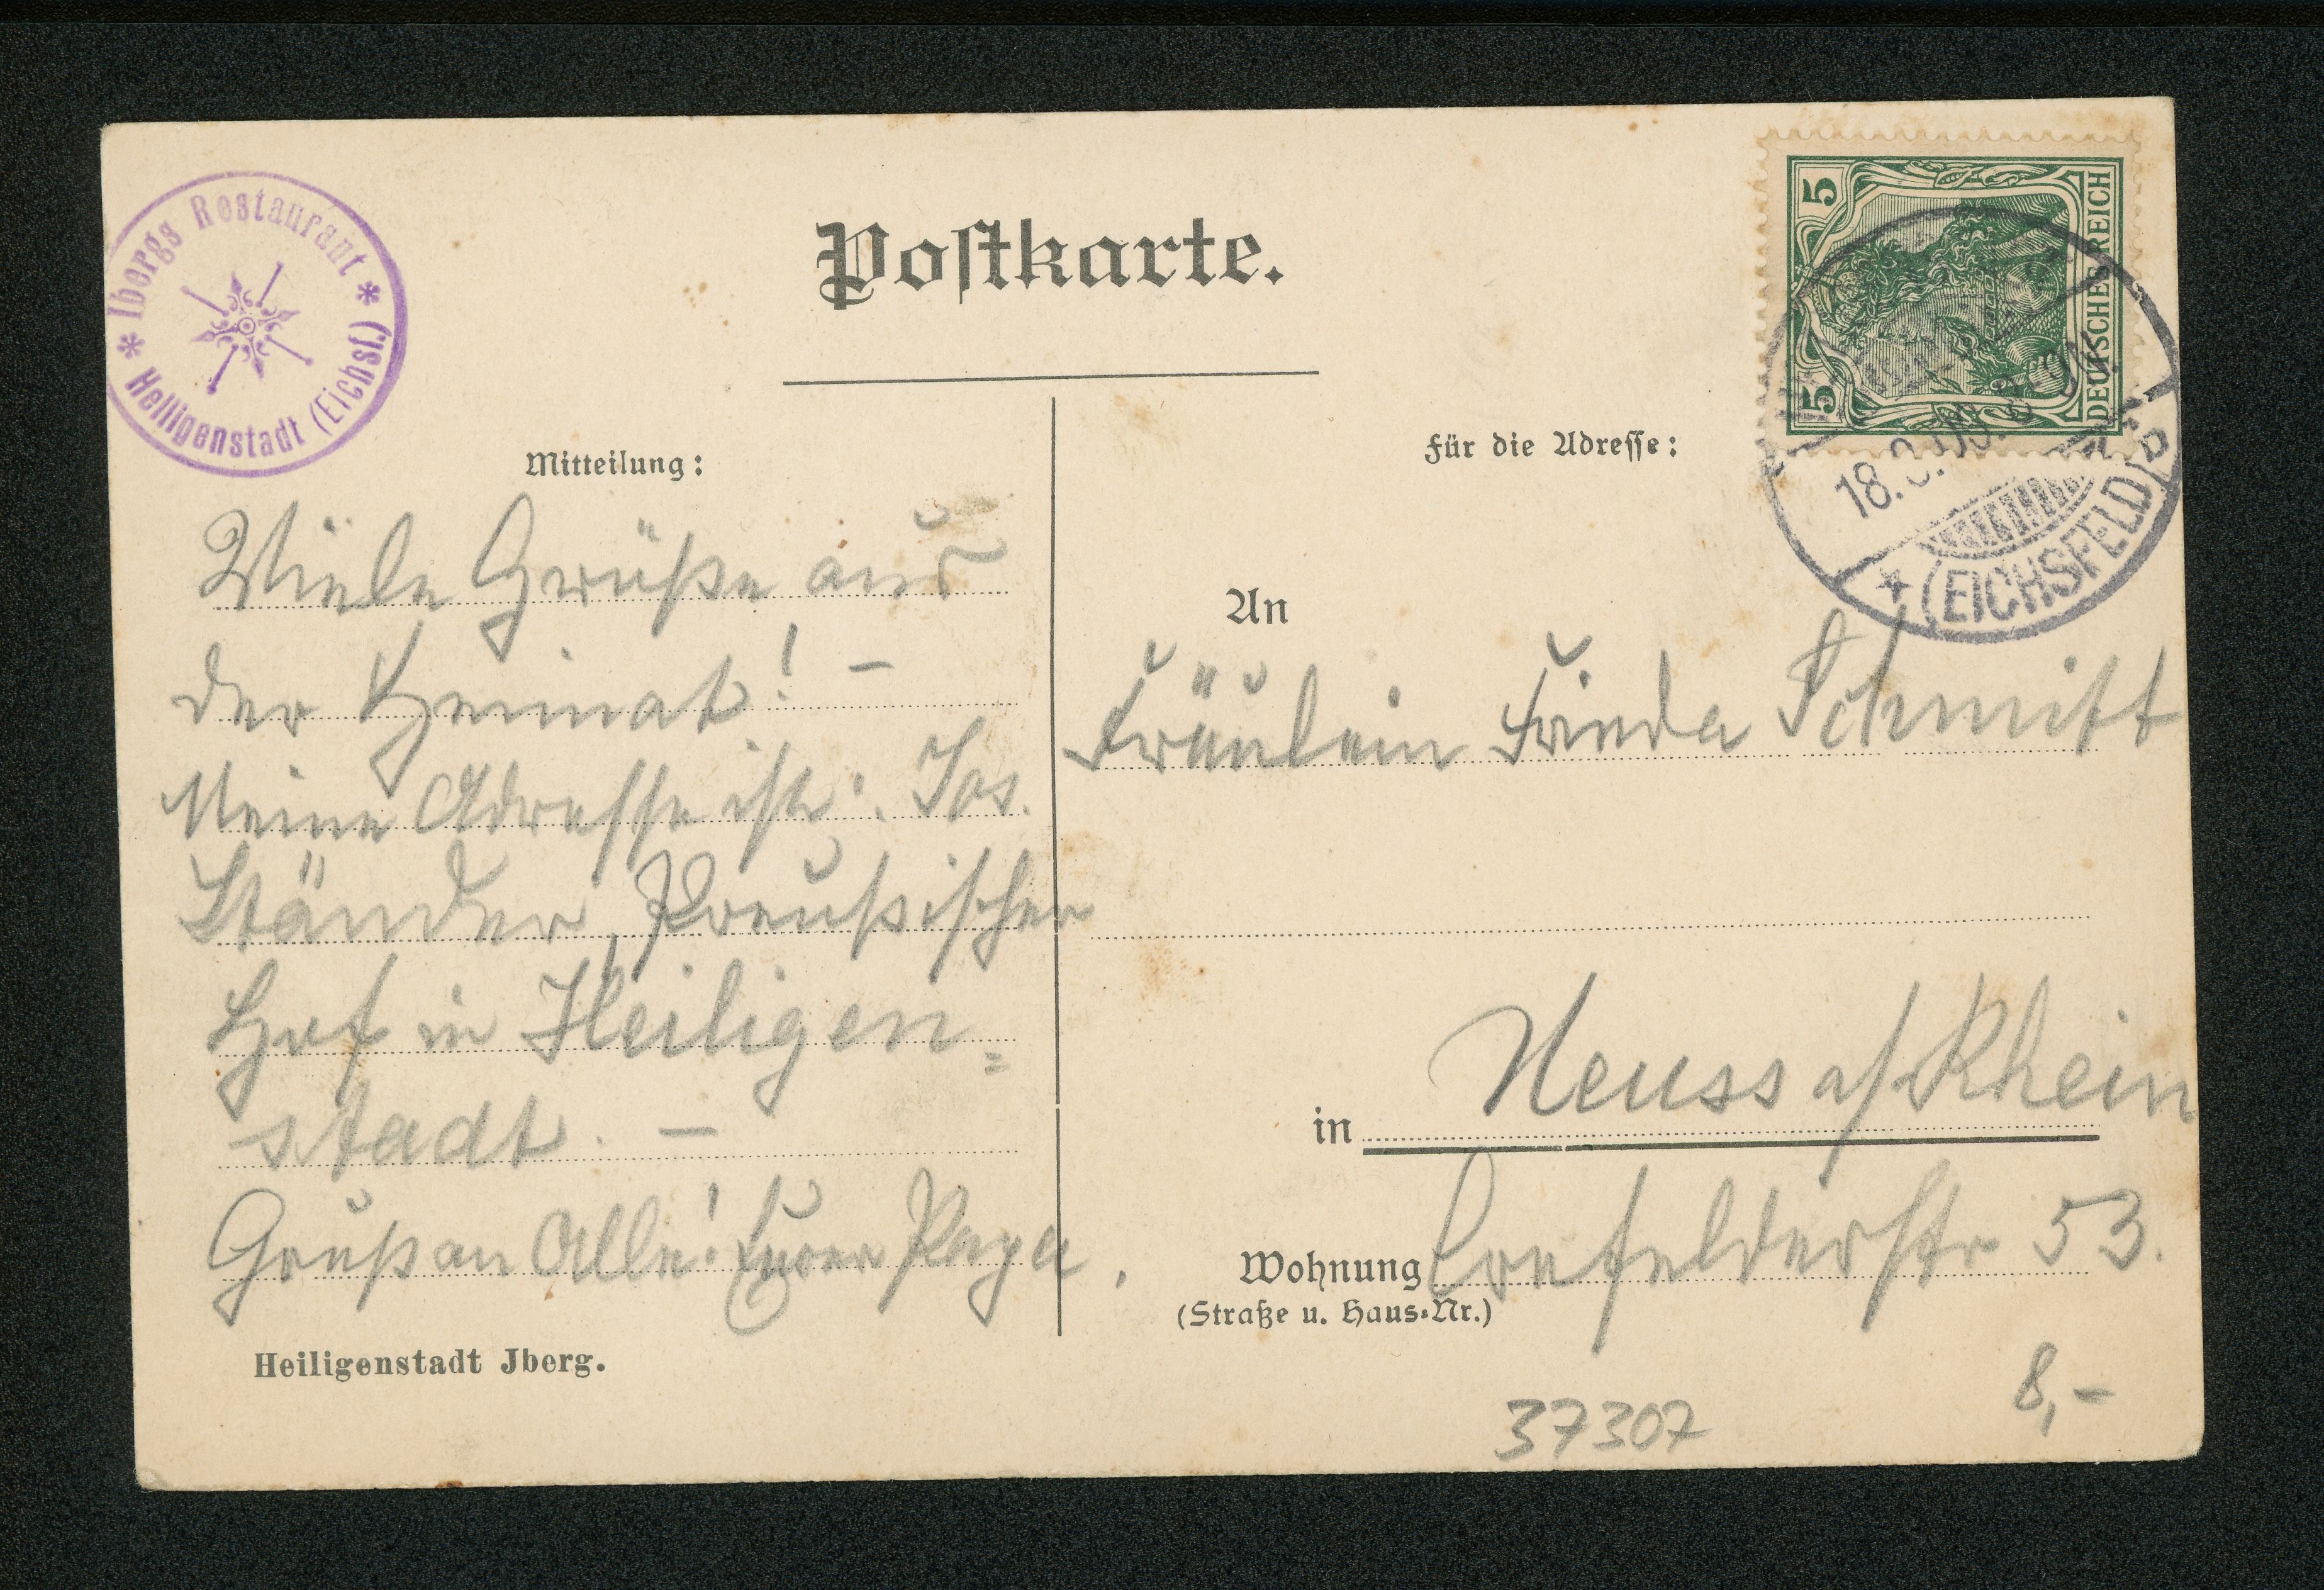 * Ibergs Restaurant *
Heiligenstadt (Eichsf.)
Postkarte.
5
5
DEUTSCHES REICH
18.
* (EICHSFELD)
Mitteilung:
Viele Grüße aus
der Heimat! –
Meine Adresse ist: Jos.
Ständer, Preußischer
Hof in Heiligen=
stadt. –
Gruß an Alle! Euer Papa.
Heiligenstadt Jberg.
Für die Adresse:
An
Fräulein Frieda Schmitt
in Neuss a/Rhein
Wohnung Crefelderstr 53.
(Straße u. Haus=Nr.)
8,–
37307